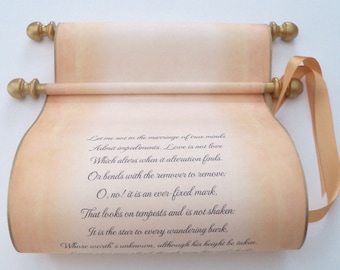 Let me not to the marriage of true minds
Admit impediments. Love is not love
Which alters when it alteration finds,
Or bends with the remover to remove:
O, no! it is an ever-fixed mark,
That looks on tempests and is not shaken;
It is the star to every wandering bark,
Whose worth's unknown, although his height be taken